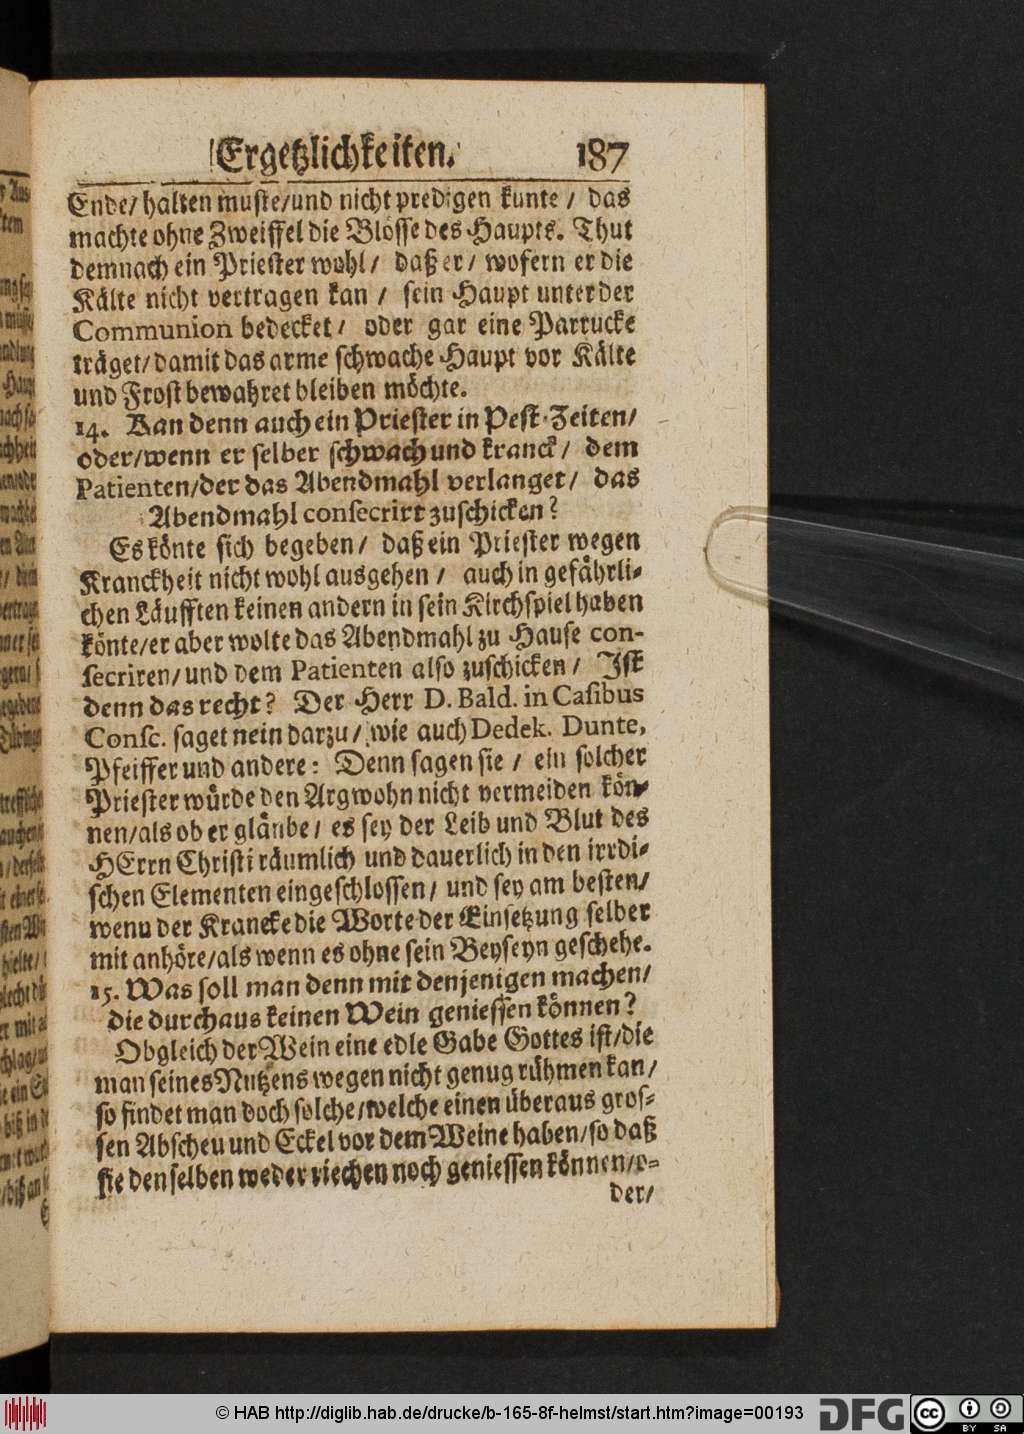 Ergetzlichkeiten. 187
Ende/ halten muste/und nicht predigen kunte / das
machte ohne Zweiffel die Blösse des Haupts. Thut
demnach ein Priester wohl/ daß er/ wofern er die
Kälte nicht vertragen kan / sein Haupt unter der
Communion bedecket/ oder gar eine Parrucke
träget/damit das arme schwache Haupt vor Kälte
und Frost bewahret bleiben möchte.
14. Kan denn auch ein Priester in Pest-Zeiten/
oder/wenn er selber schwach und kranck/ dem
Patienten/der das Abendmahl verlanget/ das
Abendmahl consecrirt zuschicken?
Es könte sich begeben/ daß ein Priester wegen
Kranckheit nicht wohl ausgehen / auch in gefährli-
chen Läufften keinen andern in sein Kirchspiel haben
könte/er aber wolte das Abendmahl zu Hause con-
secriren/und dem Patienten also zuschicken/ Ist
denn das recht? Der Herr D. Bald. in Casibus
Consc. saget nein darzu/ wie auch Dedek. Dunte,
Pfeiffer und andere: Denn sagen sie / ein solcher
Priester würde den Argwohn nicht vermeiden kön-
nen/als ob er gläube/ es sey der Leib und Blut des
HErrn Christi räumlich und dauerlich in den irrdi-
schen Elementen eingeschlossen/ und sey am besten/
wenn der Krancke die Worte der Einsetzung selber
mit anhöre/als wenn es ohne sein Beyseyn geschehe.
15. Was soll man denn mit denjenigen machen/
die durchaus keinen Wein geniessen können?
Obgleich der Wein eine edle Gabe Gottes ist/die
man seines Nutzens wegen nicht genug rühmen kan/
so findet man doch solche/welche einen überaus gros-
sen Abscheu und Eckel vor dem Weine haben/so daß
sie denselben weder riechen noch geniessen können/o-
der/
© HAB http://diglib.hab.de/drucke/b-165-8f-helmst/start.htm?image=00193 DFG cc BY SA